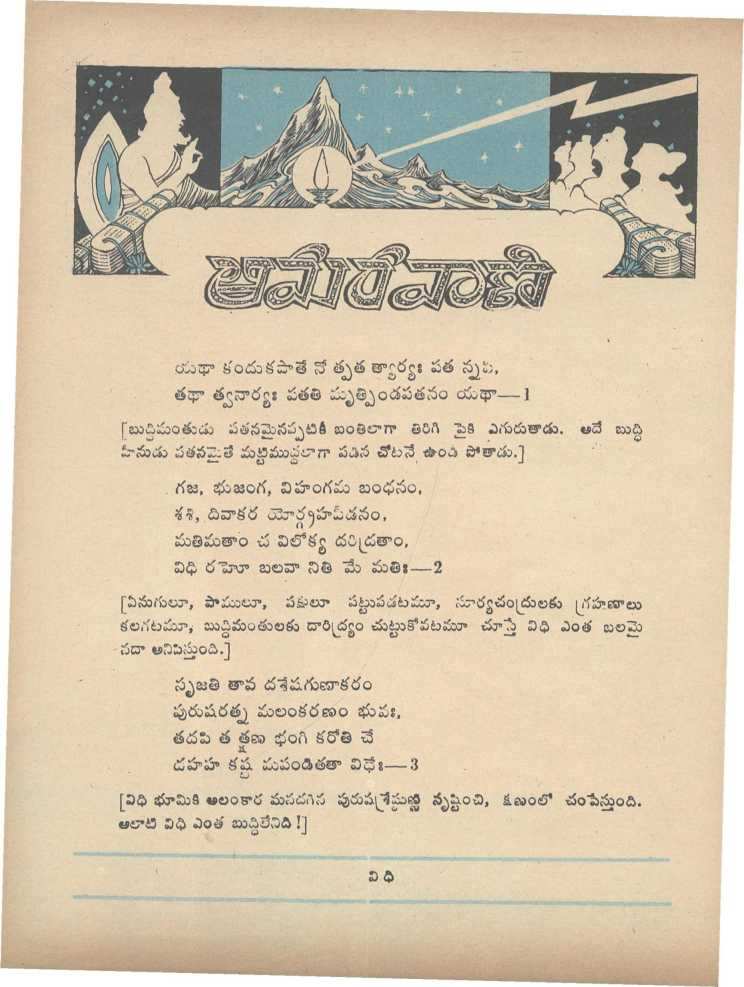 అమరవాణి
యథా కందుకపాతే నో త్పత త్యార్యః పత న్నపి,
తథా త్వనార్యః పతతి మృత్పిండపతనం యథా—1
[బుద్ధిమంతుడు పతనమైనప్పటికీ బంతిలాగా తిరిగి పైకి ఎగురుతాడు. అదే బుద్ధి
హీనుడు పతనమైతే మట్టిముద్దలాగా పడిన చోటనే ఉండి పోతాడు.]
గజ, భుజంగ, విహంగమ బంధనం,
శశి, దివాకర యోర్గ్రహపీడనం,
మతిమతాం చ విలోక్య దరిద్రతాం,
విధి రహో బలవా నితి మే మతిః—2
[ఏనుగులూ, పాములూ, పక్షులూ పట్టుపడటమూ, సూర్యచంద్రులకు గ్రహణాలు
కలగటమూ, బుద్ధిమంతులకు దారిద్ర్యం చుట్టుకోవటమూ చూస్తే విధి ఎంత బలమై
నదా అనిపిస్తుంది.]
సృజతి తావ దశేషగుణాకరం
పురుషరత్న మలంకరణం భువః,
తదపి త త్క్షణ భంగి కరోతి చే
దహహ కష్ట మపండితతా విధేః—3
[విధి భూమికి అలంకార మనదగిన పురుషశ్రేష్ఠుణ్ణి సృష్టించి, క్షణంలో చంపేస్తుంది.
అలాటి విధి ఎంత బుద్ధిలేనిది !]
విధి